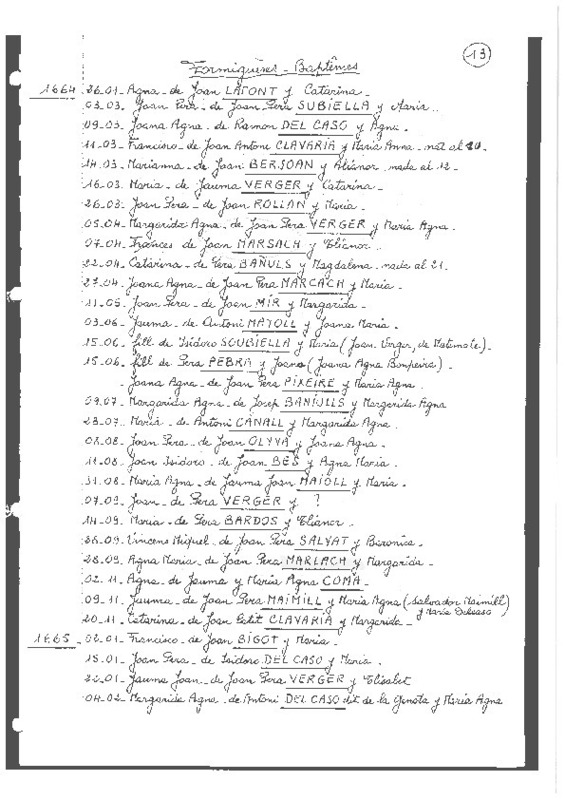 13
Formiguères - Baptêmes
1664 26.01 - Agna - de Joan LAFONT y Catarina -
03.03. Joan Pera - de Joan Pera SUBIELLA y Maria ..
09.03 - Joana Agna - de Ramon DEL CASO y Agna .
11.03 - Francisco - de Joan Antoni CLAVARIA y Maria Anna - nat al 10.
14.03 - Marianna - de Joan BERJOAN y Aliànor nada al 12 -
16.03 - Maria - de Jauma VERGER y Catarina -
26.03 - Joan Pera - de Joan ROLLAN y Maria -
05.04 - Margarida Agna - de Joan Pera VERGER y Maria Agna .
07.04 - Frances de Joan MARSACH y Eliànor .
22.04 - Catarina - de Pera BAÑULS y Magdalena - nada al 21.
27.04 - Joana Agna - de Joan Pera MARCACH y Maria -
11.05 - Joan Pera - de Joan MIR y Margarida -
03.06 - Jauma - de Antoni MATOLL y Joana Maria .
15.06 - fill de Isidoro SOUBIELLA y Maria (Joan Verger, de Matemate).
15.06 - fill de Pera PEBRA y Joana (Joana Agna Bompeira) -
- Joana Agna - de Joan Pera PIXEIRE y Maria Agna .
09.07 - Margarida Agna - de Josep BANIULLS y Margarida Agna
23.07 - Maria - de Antoni CANALL y Margarida Agna .
08.08 - Joan Pera - de Joan OLYVA y Joana Agna .
11.08 - Joan Isidoro - de Joan BES y Agna Maria .
31.08 - Maria Agna - de Jauma Joan MAIOLL y Maria .
07.09 - Joan - de Pera VERGER y ?
14.09 - Maria - de Pera BARDOS y Eliànor -
26.09 - Vincens Miquel - de Joan Pera SALVAT y Baronica -
28.09 - Agna Maria - de Joan Pera MARLACH y Margarida -
02.11 - Agna - de Jauma y Maria Agna COMA -
09.11 - Jauma - de Joan Pera MAIMILL y Maria Agna (Salvador Maimill y Maria Delcaso)
20.11 - Catarina - de Joan Petit CLAVARIA y Margarida -
1665 02.01 - Francisco - de Joan BIGOT y Maria -
15.01 - Joan Pera - de Isidoro DEL CASO y Maria .
22.01 - Jauma Joan - de Joan Pera VERGER y Elisabet
04.02 - Margarida Agna - de Antoni DEL CASO dit de la Genota y Maria Agna